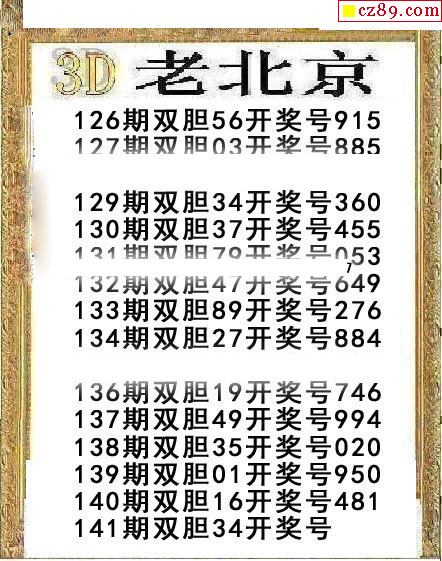 cz89.com
3D 老北京
126期双胆56开奖号915
127期双胆03开奖号885
129期双胆34开奖号360
130期双胆37开奖号455
131期双胆79开奖号053
7
132期双胆47开奖号649
133期双胆89开奖号276
134期双胆27开奖号884
136期双胆19开奖号746
137期双胆49开奖号994
138期双胆35开奖号020
139期双胆01开奖号950
140期双胆16开奖号481
141期双胆34开奖号